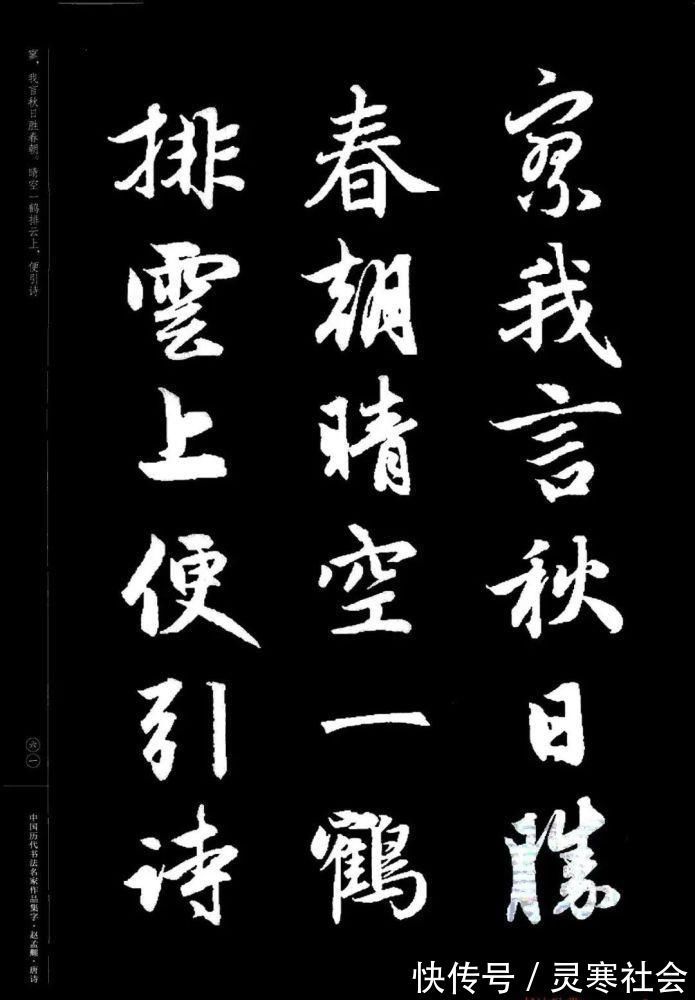 寥我言秋日勝
春朝晴空一鶴
排雲上便引诗
寥，我言秋日胜春朝。晴空一鹤排云上，便引诗
六一
中国历代书法名家作品集字·赵孟頫·唐诗
快传号／灵寒社会